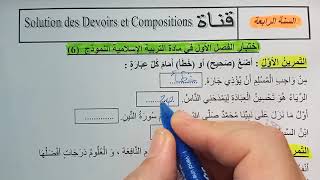 السنة الرابعة
قناة Solution des Devoirs et Compositions
اختبار الفصل الأول في مادة التربية الإسلامية النموذج (6)
التمرين الأوّل : أضع (صحيح) أو (خطأ) أمام كلّ عبارة :
مِنْ واجِبِ المُسْلِمِ أَنْ يُؤْذِيَ جارَهُ.
الرِّيَاءُ هُوَ تَحْسِينُ العِبَادَةِ لِيَمْدَحَنِي النَّاسُ.
أَوَّلُ مَا نَزَلَ عَلَى نَبِيِّنَا مُحَمَّدٍ سُورَةُ التِّينِ.
النَّافِعَةِ ، وَ العُلُومُ دَرَجَاتٌ أَفْضَلُهَا